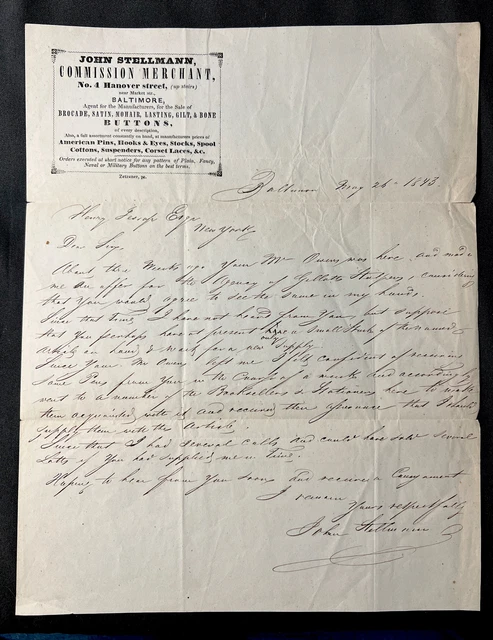 JOHN STELLMANN,
COMMISSION MERCHANT,
No. 4 Hanover street, (up stairs)
near Market st.,
BALTIMORE,
Agent for the Manufacturers, for the Sale of
BROCADE, SATIN, MOHAIR, LASTING, GILT, & BONE
BUTTONS,
of every description,
Also, a full assortment constantly on hand, at manufacturers prices of
American Pins, Hooks & Eyes, Stocks, Spool
Cottons, Suspenders, Corset Laces, &c.
Orders executed at short notice for any pattern of Plain, Fancy,
Naval or Military Buttons on the best terms.
Baltimore May 26th 1843
Henry Jessop Esqr
New York
Dear Sir,
About three Weeks ago Your Mr Owens was here, and made
me an offer for the Agency of Gillotts Steelpens, considering
that You would agree to see the same in my hands.
Since that time, I have not heard from You, but suppose
that You perhaps have at present only a Small Stock of the named
Article on hand, & wait for a new Supply
Since Your Mr Owens left me I felt confident of receiving
Some Pens from You in the Course of a week and accordingly
went to a number of the Booksellers & Stationers here to make
them acquainted with it and received their assurance that I should
supply them with the Article.
Since that I had several calls and could have sold several
Lots if You had supplied me in Time.
Hoping to hear from You soon and receive a Consignment
I remain
Yours respectfully
John Stellmann